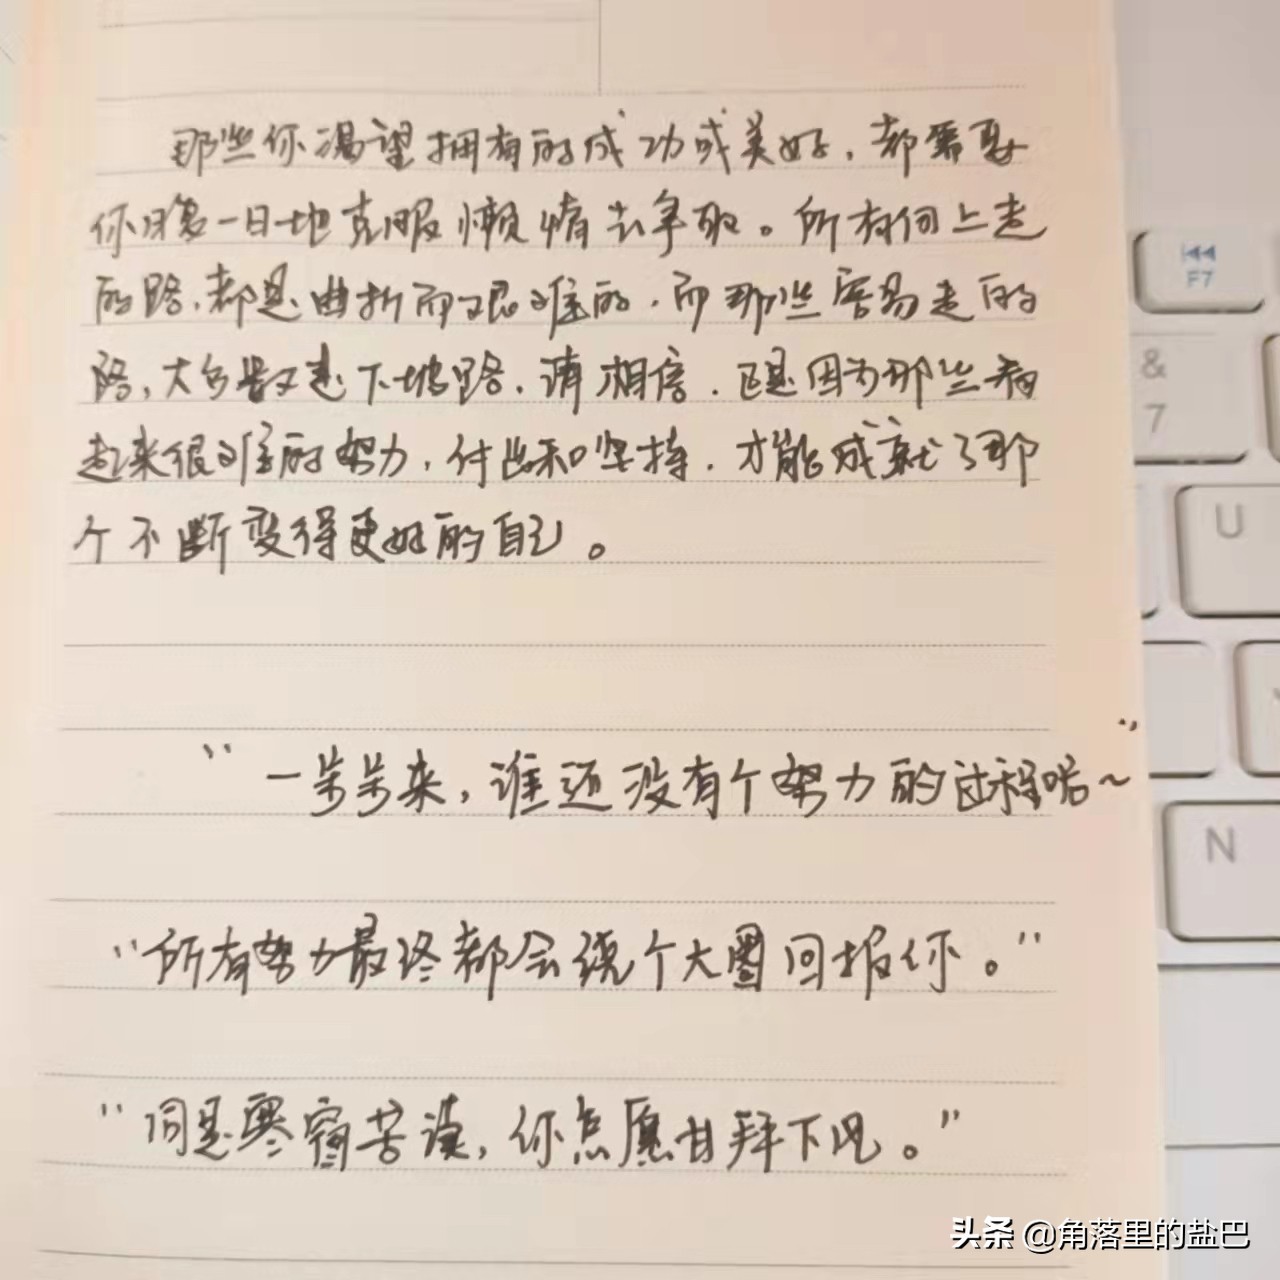 那些你渴望拥有的成功或美好，都需要
你日复一日地克服懒惰去争取。所有向上走
的路，都是曲折而艰难的，而那些容易走的
路，大多数是下坡路，请相信，正是因为那些看
起来很难的努力，付出和坚持，才能成就了那
个不断变得更好的自己。
“一步步来，谁还没有个努力的过程啦～”
“所有努力最终都会绕个大圈回报你。”
“同是寒窗苦读，你怎愿甘拜下风。”
F7
&
7
U
N
头条 @角落里的盐巴